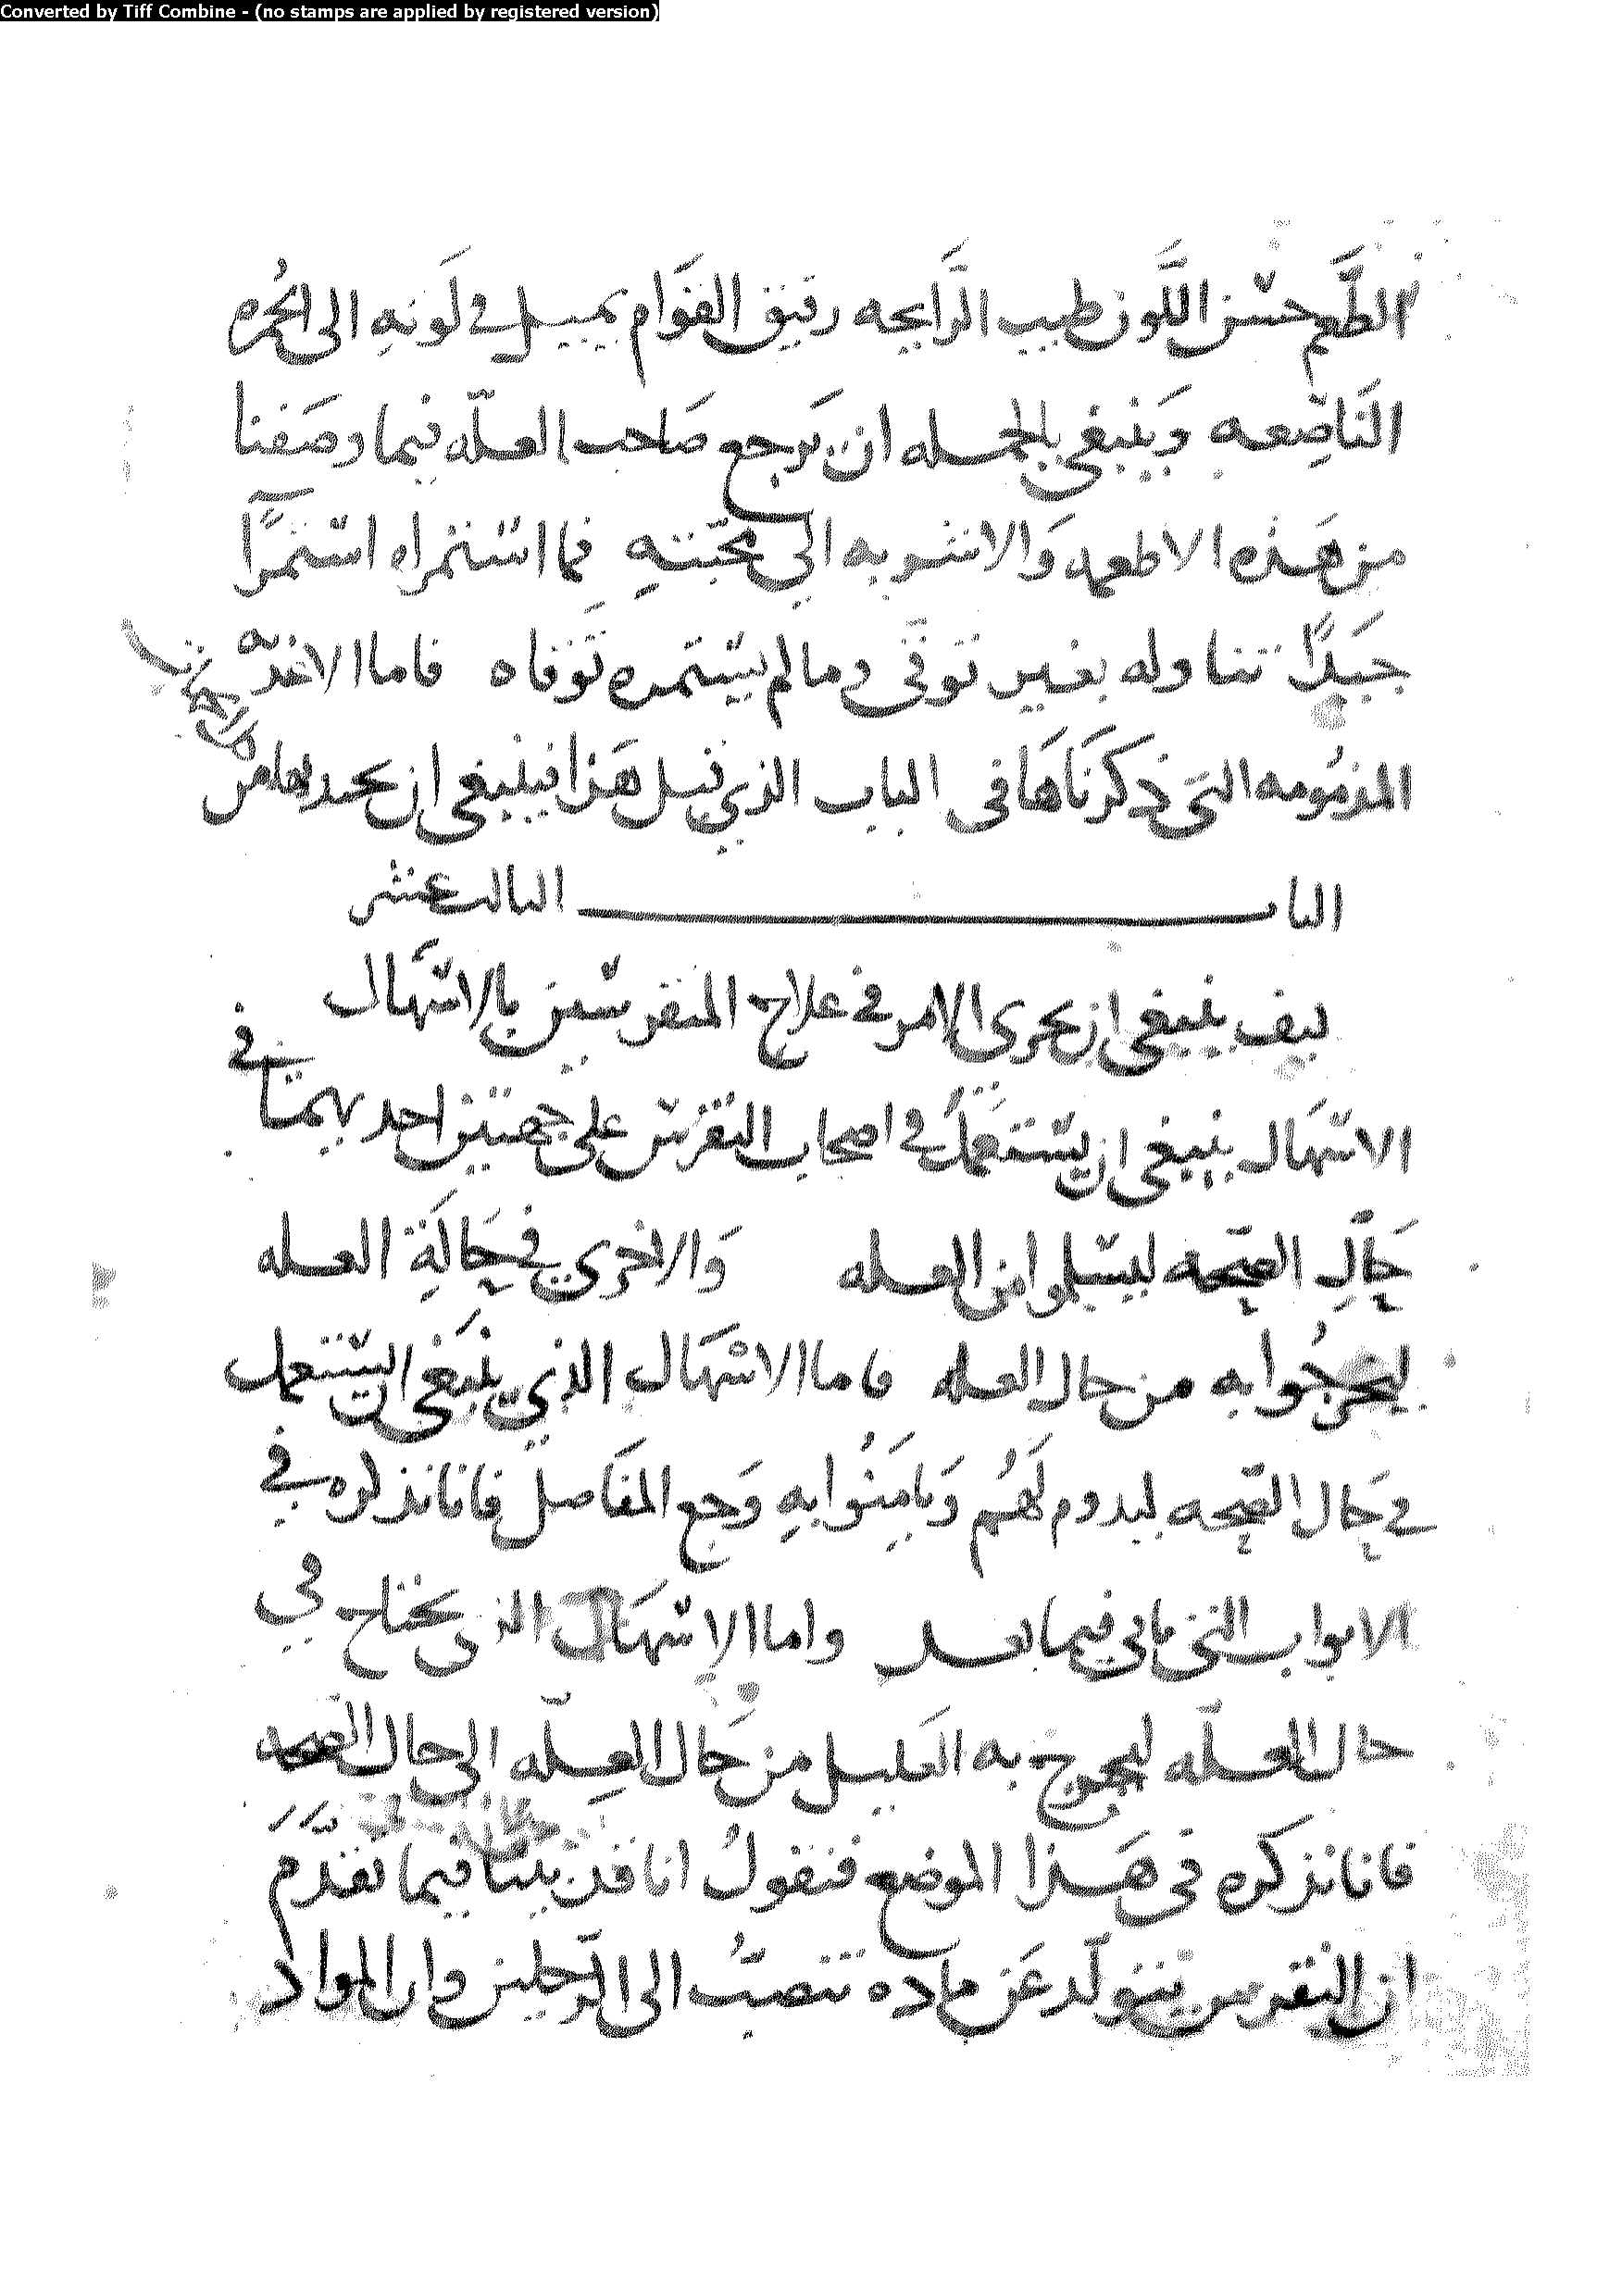 Converted by Tiff Combine - (no stamps are applied by registered version)
الطَّعم حسْن اللَّون طيب الرَّايحه رقيق القوَام يميل في لَونهِ الى الحُمره
النَاصِعه وَينبغى بالجمله ان يَرجع صَاحب العلّه فيما وصَفنا
من هَذه الاطعمه وَالاشربه الى محَبّتهِ فما استمراه استمرًا
جَيدًا تناوله بغير توقّى وما لم يستمره تَوَقاه فاما الاغذيه
المذمُومه التى ذكرنَاهَا فى الباب الذي قبل هَذا فينبغى ان يحدرها من
الباب الثالث عشر
كيف ينبغى ان يجرى الامر في علاج المنقرسين بالاسْهَال
الاسْهَال ينبغى ان يسْتعمَلُ في اصحاب النقرس على جهتين احديهما في
حَالِ الصّحه ليسْلموا من العله وَالاخرى في حَالَةِ العله
ليخرجُوا به من حال العله فاما الاسْهَال الذي ينبَغى ان يسْتعمل
في حَال الصّحه ليدوم لَهُم وَيامَنُوا بهِ وَجع المفَاصل فانا نذكره في
الابواب التى تاتي فيما بعد واما الاسْهَال الذى يحتاج في
حال العلّه ليخرج به العَليل من حَال العِلّه الى حال الصحه
فانا نذكره في هَذا الموضع فنقولُ انا قد بيَنا فيما تقدَمَ
ان النقرس يتولّد عَن ماده تنصَبُّ الى الرّجلين وان المواد